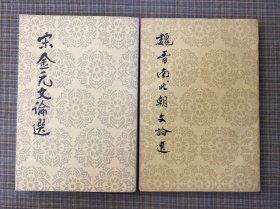 宋金元文論選
魏晋南北朝文論選